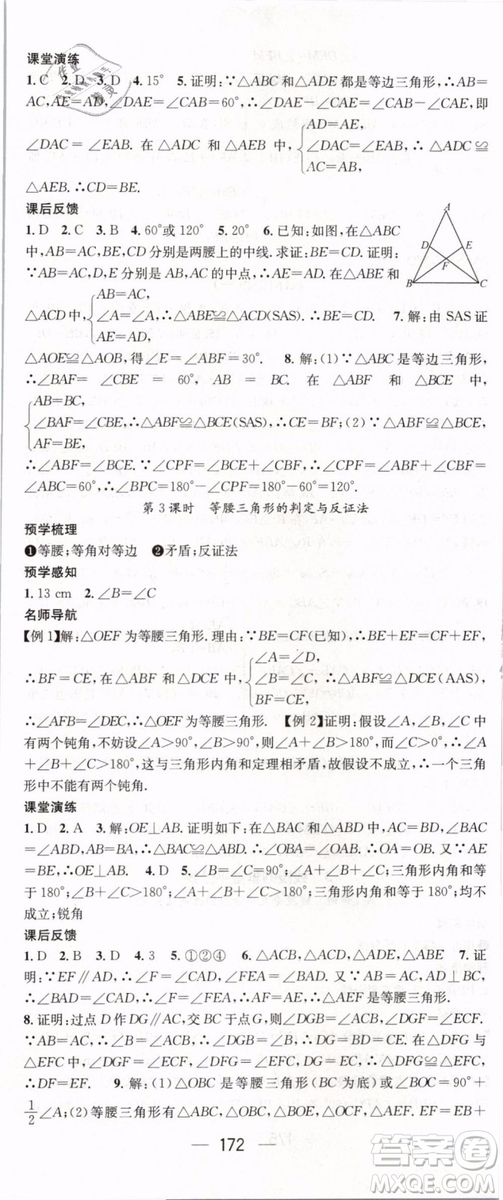 课堂演练
1. C 2. D 3. D 4. 15° 5. 证明：∵△ABC 和△ADE 都是等边三角形，∴AB=
AC，AE=AD，∠DAE=∠CAB=60°，∴∠DAE-∠CAE=∠CAB-∠CAE，即
∠DAC=∠EAB. 在△ADC 和△AEB 中，{AC=AB, ∠DAC=∠EAB, AD=AE, ∴△ADC≌
△AEB. ∴CD=BE.
课后反馈
1. D 2. C 3. B 4. 60°或 120° 5. 20° 6. 已知：如图，在△ABC
中，AB=AC，BE，CD 分别是两腰上的中线. 求证：BE=CD. 证明：
∵AB=AC，BE，CD 分别是 AB，AC 的中点，∴AD=AE. 在△ABE 和
△ACD 中，{AB=AC, ∠A=∠A, AE=AD, ∴△ABE≌△ACD(SAS). ∴BE=CD. 7. 解：由 SAS 证
△AOE≌△AOB，得∠E=∠ABF=30°. 8. 解：(1)∵△ABC 是等边三角形，
∴∠BAF=∠CBE=60°，AB=BC. 在△ABF 和△BCE 中，
{AB=BC, ∠BAF=∠CBE, AF=BE, ∴△ABF≌△BCE(SAS)，∴BF=CE；(2)∵△ABF≌△BCE，
∴∠ABF=∠BCE. ∵∠CPF=∠BCE+∠CBP，∴∠CPF=∠ABF+∠CBP=
∠ABC=60°，∴∠CPF=60°，∴∠BPC=180°-60°=120°.
第 3 课时 等腰三角形的判定与反证法
预学梳理
❶等腰；等角对等边 ❷矛盾；反证法
预学感知
1. 13 cm 2. ∠B=∠C
名师导航
【例 1】解：△OEF 为等腰三角形. 理由：∵BE=CF(已知)，∴BE+EF=CF+EF，
∴BF=CE，在△ABF 和△DCE 中，{∠A=∠D, ∠B=∠C, BF=CE, ∴△ABF≌△DCE(AAS)，
∴∠AFB=∠DEC，∴△OEF 为等腰三角形. 【例 2】证明：假设∠A，∠B，∠C 中
有两个钝角，不妨设∠A>90°，∠B>90°，∵∠A>90°，∠B>90°，∠C>0°，∴∠A+
∠B+∠C>180°，这与三角形内角和定理相矛盾，故假设不成立，∴一个三角
形中不能有两个钝角.
课堂演练
1. D 2. A 3. 解：OE⊥AB. 证明：在△BAC 和△ABD 中，∴△BAC≌△ABD，
∴∠OBA=∠OAB，∴OA=OB. 又∵AE=BE，
∴OE⊥AB. 4. D 5. ∠B=∠C=90°；三角形内角和等
于 180°；∠B+∠C=180°；∠A+∠B+∠C>180°；三角形内角和等于 180°；不
成立；锐角
课后反馈
1. D 2. B 3. D 4. 3 5. ①②④ 6. △ACB，△ACD，△ADE，△ABE 7. 证
明：∵EF∥AD，∴∠BAD=∠AFE，∠CAD=∠FEA，又∵AD 平分∠BAC，
∴∠BAD=∠CAD，∴∠AFE=∠FEA，∴△AEF 是等腰三角形.
8. 证明：过点 D 作 DG∥AC 交 BC 于点 G，则∠DGB=∠ACB，∠DGF=
∠ECF，∵AB=AC，∴∠B=∠ACB. ∴∠B=∠DGB. ∴DG=DB=EC. 在△DFG 和
△EFC 中，∠DGF=∠ECF，∠DFG=∠EFC，DG=EC，∴△DFG≌△EFC，
∴DF=EF. 9. 解：(1)△OBC 是等腰三角形(BC 为底) ∠BOC=90°+
½∠A；(2)等腰三角形有△ABC，△OBC，△EBO，△FCO，△AEF. EF=EB+
172